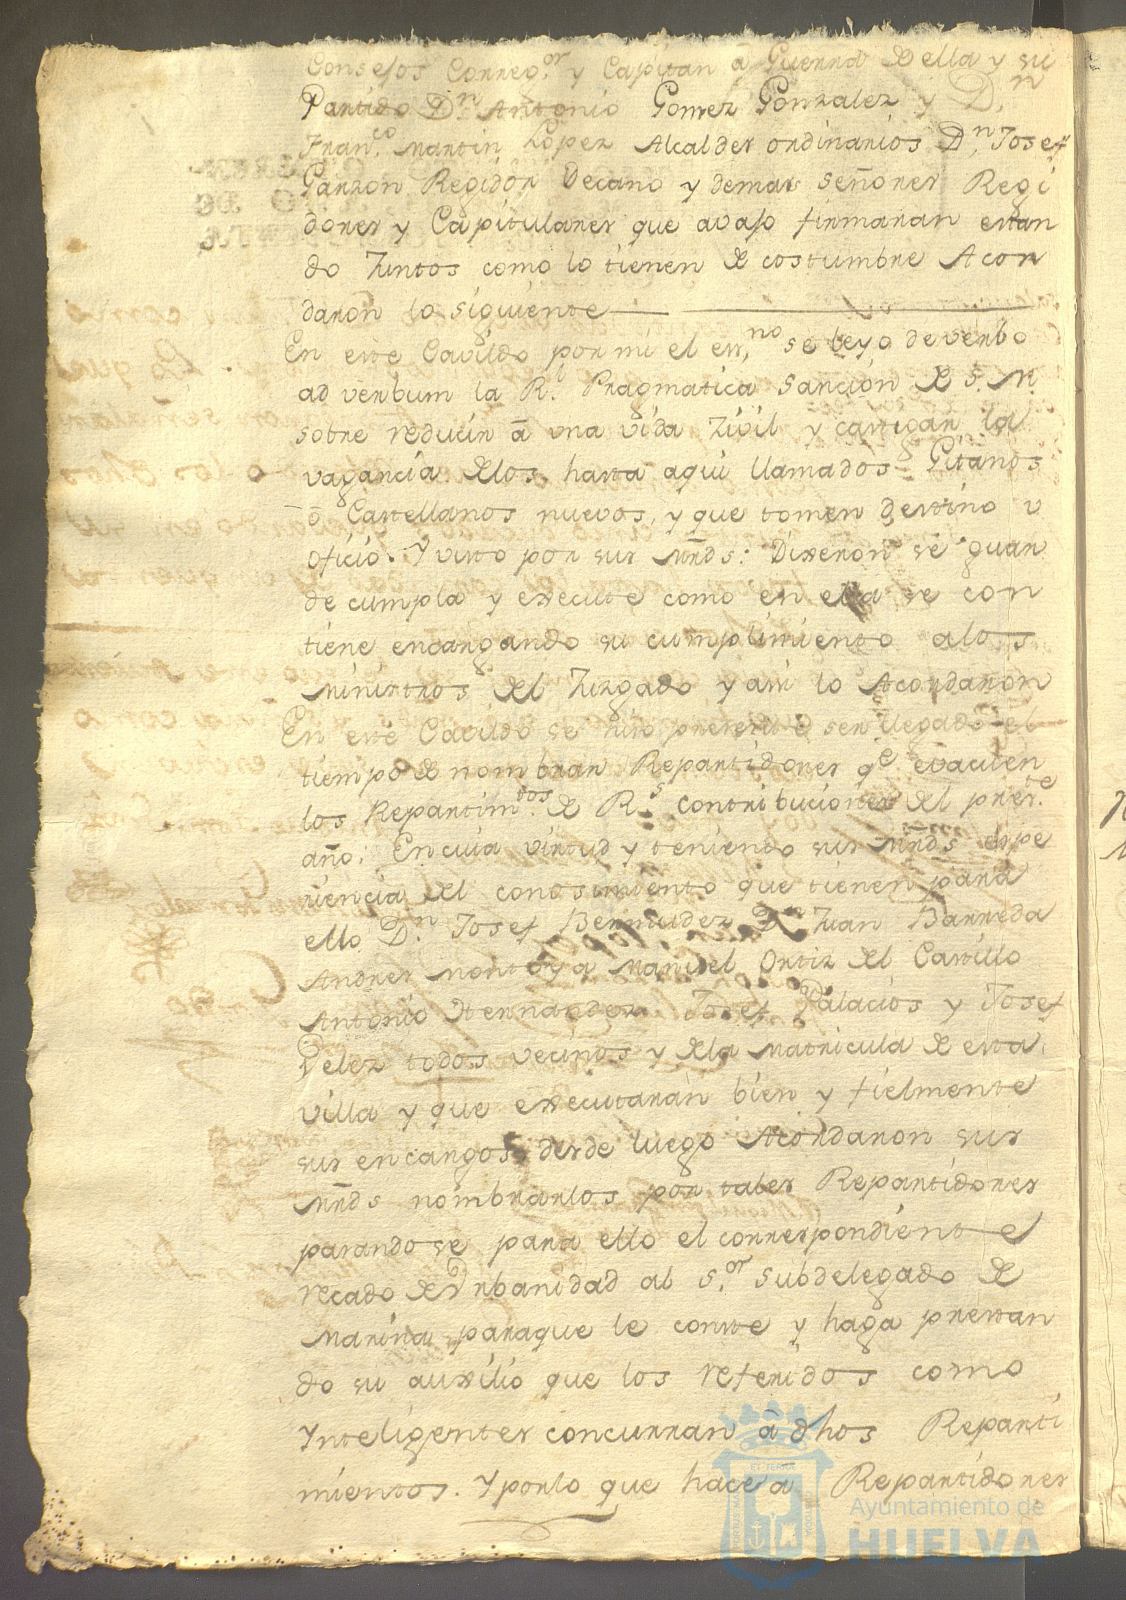 Consejos Correg.or y Capitan â Guerra de ella y su
Partido D.n Antonio Gomez Gonzalez y D.n
Fran.co Martin Lopez Alcaldes ordinarios D.n Josef
Garzon Regidor Decano y demas señores Regi
dores y Capitulares que avajo firmaran estan
do Juntos como lo tienen de costumbre Acor
daron lo siguiente
En este Cavildo por mi el ess.no se leyo de verbo
ad verbum la R.l Pragmatica sanción de S. M.
sobre reducir â una vida Zivil y castigar la
vagancia delos hasta aqui llamados Gitanos
ô Castellanos nuevos, y que tomen destino u
oficio. Y visto por sus Mrds: Dixeron se guar
de cumpla y execute como en ella se con
tiene encargando su cumplimiento alos
Ministros del Juzgado y asi lo Acordaron
En este Cavildo se hizo presente ser llegado el
tiempo de nombrar Repartidores q.e evacuen
los Repartim.tos de R.s contribuciones del pres.te
año: En cuia virtud y teniendo sus Mrds espe
riencia del conosimiento que tienen para
ello D.n Josef Bermudez D.n Juan Barreda
Andres Montoya Manuel Ortiz del Castillo
Antonio Hernandez Josef Palacios y Josef
Velez todos vecinos y dela Matricula de esta
villa y que executarán bien y fielmente
sus encargos desde luego Acordaron sus
Mrds nombrarlos por tales Repartidores
pasando se para ello el correspondiente
recado de Urbanidad al S.or Subdelegado de
Marina paraque le conste y haga prestan
do su auxilio que los referidos como
Ynteligentes concurran â dhos Reparti
mientos. Y porlo que hace â Repartidores
Ayuntamiento de
HUELVA